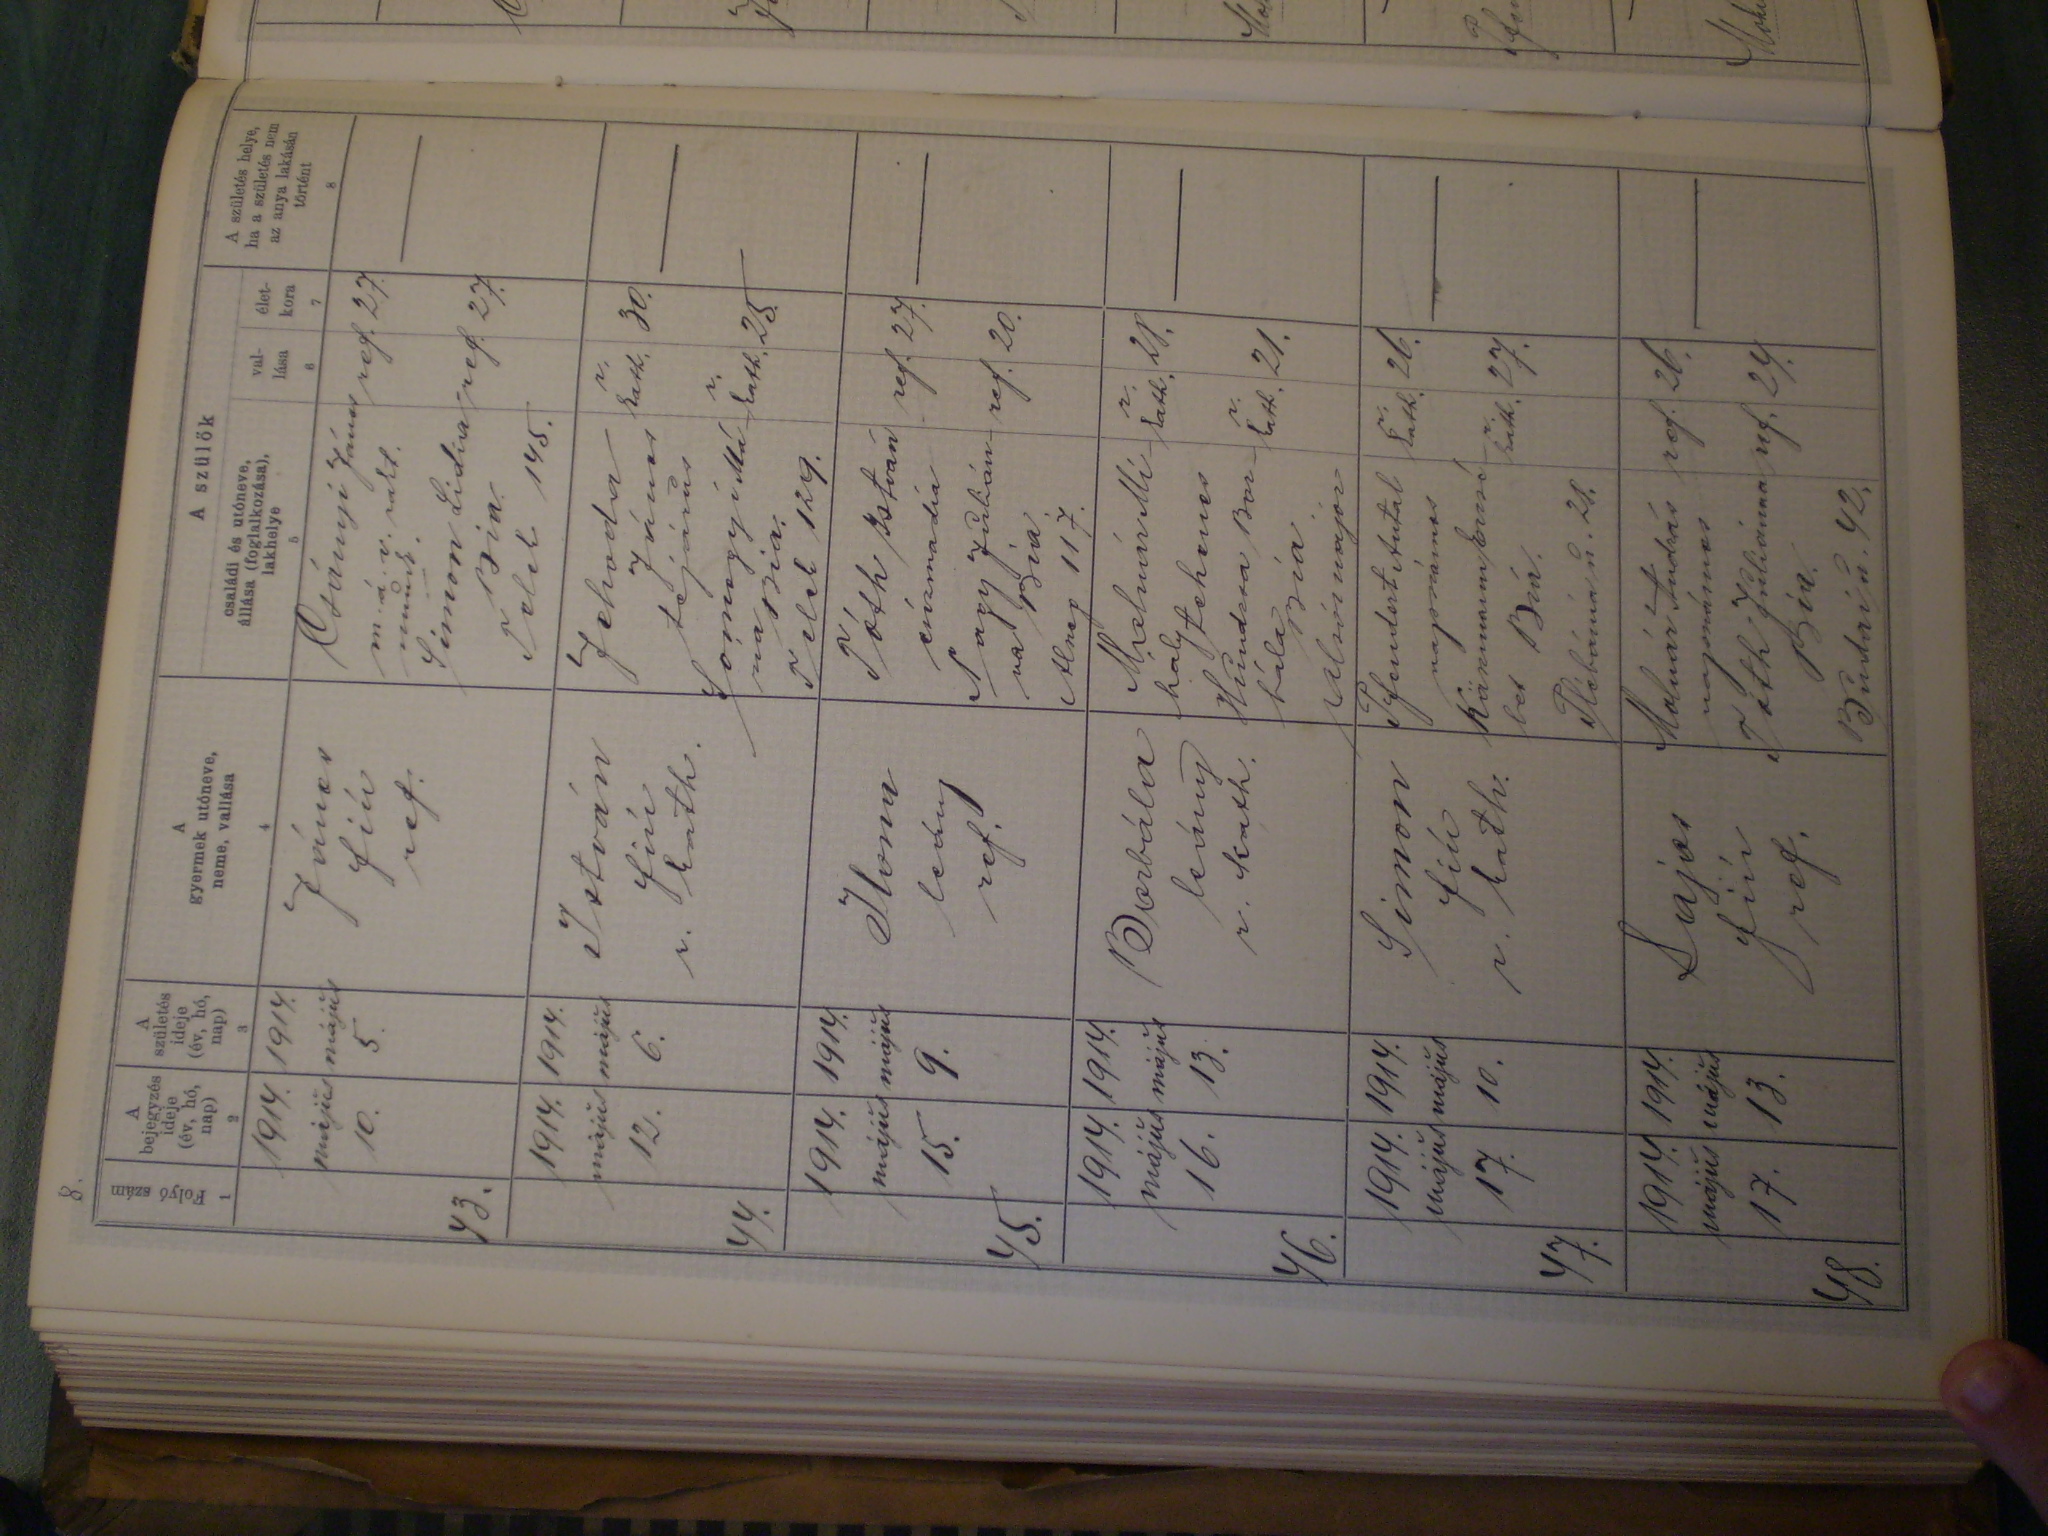 8.
Folyó szám
1
A
bejegyzés
ideje
(év, hó,
nap)
2
A
születés
ideje
(év, hó,
nap)
3
A
gyermek utóneve,
neme, vallása
4
A szülők
családi és utóneve,
állása (foglalkozása),
lakhelye
5
val-
lása
6
élet-
kora
7
A születés helye,
ha a születés nem
az anya lakásán
történt
8
43.
1914.
május
10.
1914.
május
5.
János
fiú
ref.
Csányi János
m. á. v.
Simon Lidia
Bia
Telek 145.
ref. 27.
ref. 27.
44.
1914.
május
12.
1914.
május
6.
István
fiú
r. kath.
Jehoda
János
tejárus
Somogyi Má-
ria Bia.
Telek 129.
r.
kath. 30.
r.
kath. 25.
45.
1914.
május
15.
1914.
május
9.
Ilona
leány
ref.
Tóth István
cipészmadia
Nagy Juliánn-
na Bia
117.
ref. 27.
ref. 20.
46.
1914.
május
16.
1914.
május
13.
Borbála
leány
r. kath.
Mi-
hály tehenes
Bor-
bála Bia
r.
kath. 28.
r.
kath. 21.
47.
1914.
május
17.
1914.
május
10.
Simon
fiú
r. kath.
Antal
napszámos
Bia.
28.
r.
kath. 26.
r.
kath. 27.
48.
1914.
május
17.
1914.
május
13.
Lajos
fiú
ref.
Molnár András
napszámos
Tóth Juliánna
Bia.
42.
ref. 26.
ref. 24.